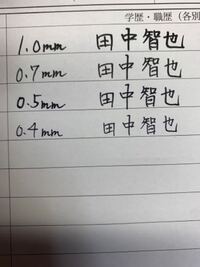 学歴・職歴（各別
1.0mm 田中智也
0.7mm 田中智也
0.5mm 田中智也
0.4mm 田中智也